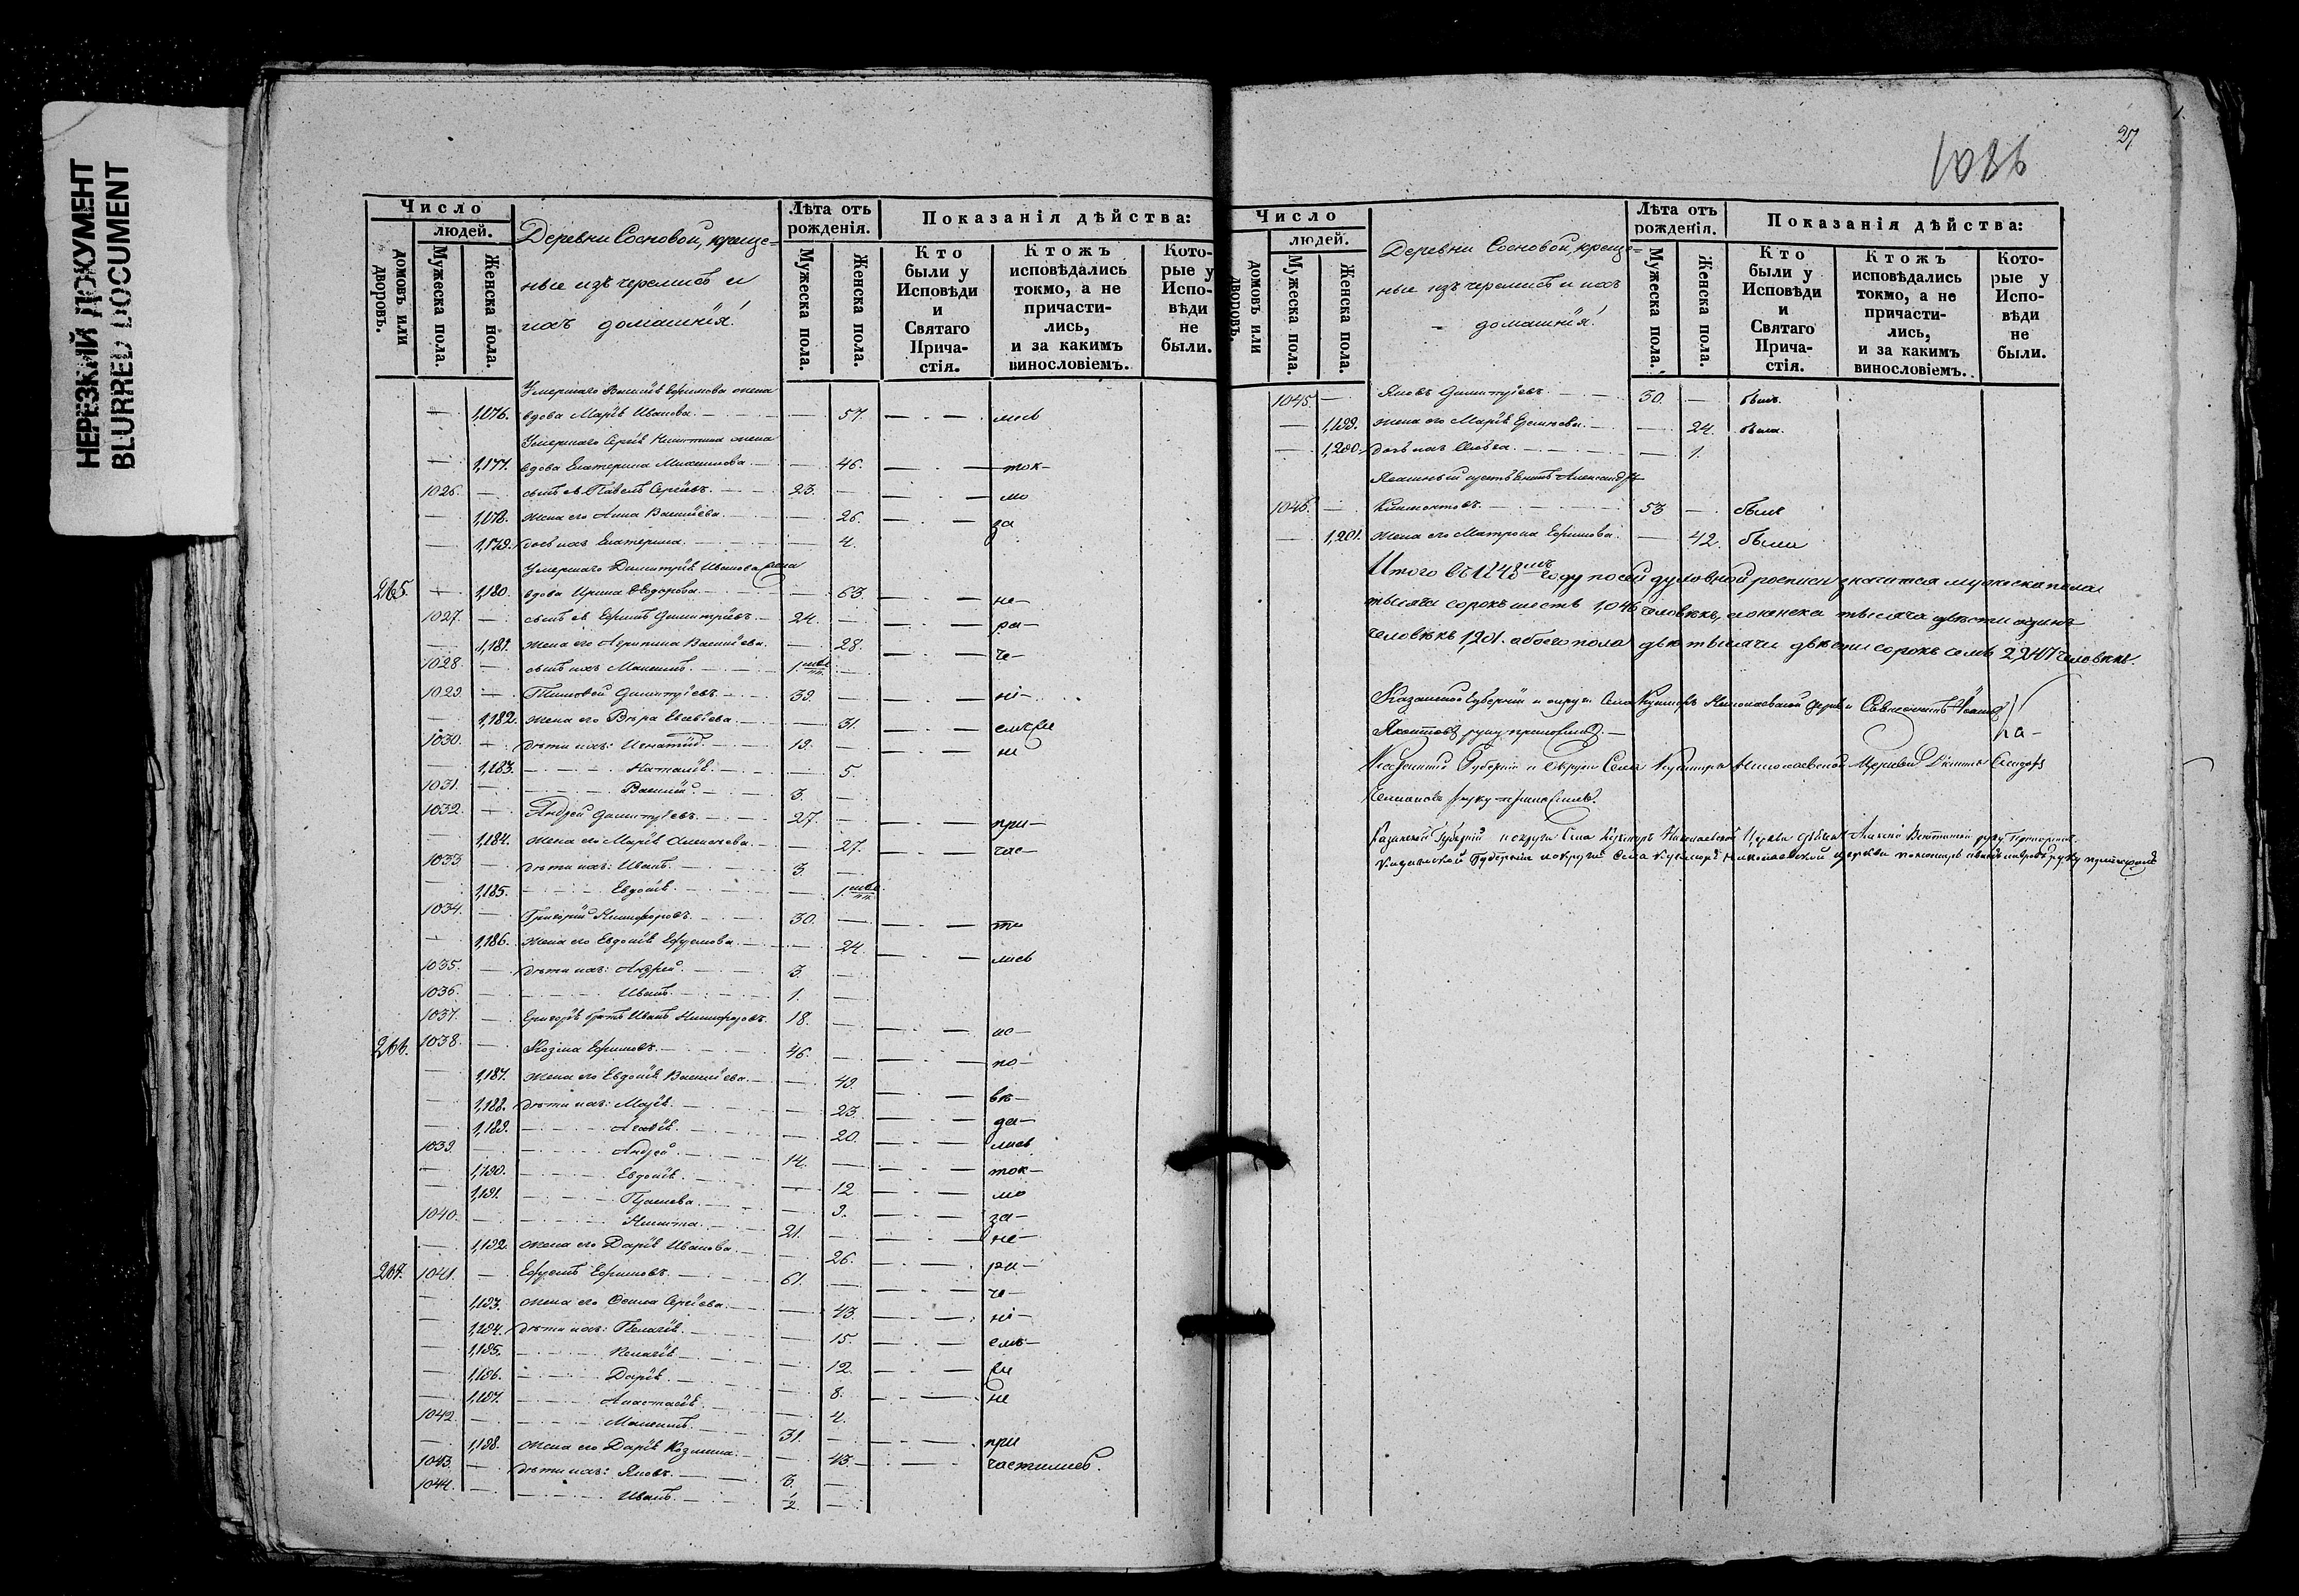 НЕРЕЗКИЙ ДОКУМЕНТ
BLURRED DOCUMENT
Число
людей.
домовъ или дворовъ.
Мужеска пола.
Женска пола.
Деревни Сосновой, креще-
ные изъ черемисъ и
ихъ домашнія:
Лѣта отъ рожденія.
Мужеска пола.
Женска пола.
Показанія дѣйства:
Кто были у Исповѣди и Святаго Прича-стія.
Ктожъ исповѣдались токмо, а не причасти-лись, и за какимъ винословіемъ.
Кото-рые у Испо-вѣди не были.
Умершаго Василія Ефимова жена
— 1,176. вдова Марія Иванова. — 57. — лись
Умершаго Сергія Никитина жена
— 1,177. вдова Екатерина — 46. — ток-
1026. — сынъ ея Павелъ Сергіевъ. 23. — мо
— 1,178. жена его Анна Василіева. — 26. — за
— 1,179. дочь ихъ Екатерина. — 4.
Умершаго Димитрія Иванова жена
265. — 1,180. вдова Ирина Ѳеодорова. — 63. — не-
1027. — сынъ ея Ефимъ Димитріевъ. 24. — ра-
— 1,181. жена его Агрипина Василіева. — 28. — че-
1028. — сынъ ихъ Максимъ. 1. —
1029. — Тимоѳей Димитріевъ. 39. — ні-
— 1,182. жена его Вѣра Евсевіева. — 31. — емъ
1030. — дѣти ихъ: Игнатій. 13. — не
— 1,183. Наталія. — 5.
1031. — Василій. 3. —
1032. — Андрей Димитріевъ. 27. — при-
— 1,184. жена его Марія — 27. — час-
1033. — дѣти ихъ: Иванъ. 3. —
— 1,185. Евдокія. — 1.
1034. — Григорій Никифоровъ. 30. — ти
— 1,186. жена его Евдокія Ефремова. — 24. — лись
1035. — дѣти ихъ: Андрей. 3. —
1036. — Иванъ. 1. —
1037. — Григорія братъ Иванъ Никифоровъ. 18. — ис-
266. 1038. — Козма Ефимовъ. 46. — по-
— 1,187. жена его Евдокія Василіева. — 49. — вѣ-
— 1,188. дѣти ихъ: Марія. — 23. — да-
— 1,189. Агафія. — 20. — лись
1039. — Андрей. 14. — ток-
— 1,190. Евдокія. — 12. — мо
— 1,191. — 9. — за-
1040. — Никита. 21. — не-
— 1,192. жена его Дарія Иванова. — 26. — ра-
267. 1041. — Ефремъ Ефимовъ. 61. — че-
— 1,193. жена его Сергіева. — 43. — ні-
— 1,194. дѣти ихъ: Пелагія. — 15. — емъ-
— 1,195. Пелагія — 12.
— 1,196. Дарія. — 8. — не
— 1,197. Анастасія. — 4.
1042. — Максимъ. 31. — при
— 1,198. жена его Дарія Козмина. — 43. — частились.
1043. — дѣти ихъ: Яковъ. 3. —
1044. — Иванъ. 1/2. —
27
1036
Число
людей.
домовъ или дворовъ.
Мужеска пола.
Женска пола.
Деревни Сосновой, креще-
ные изъ черемисъ и ихъ
домашнія:
Лѣта отъ рожденія.
Мужеска пола.
Женска пола.
Показанія дѣйства:
Кто были у Исповѣди и Святаго Прича-стія.
Ктожъ исповѣдались токмо, а не причасти-лись, и за какимъ винословіемъ.
Кото-рые у Испо-вѣди не были.
1045. — Яковъ Димитріевъ. 30. — былъ.
— 1,199. жена его Марія — 24. была.
— 1,200. дочь ихъ — 1.
Александръ
1046. — 53 — былъ
— 1,201. жена его Матрона Ефимова. — 42. была
Итого въ 1848мъ году по сей духовной росписи значится мужеска пола
тысяча сорокъ шесть 1,046 человѣкъ, женска тысяча двѣсти одинъ
человѣкъ 1,201. обоего пола двѣ тысячи двѣсти сорокъ семь 2,247 человѣкъ.
Казанской Губерніи и округи Села Кушмаръ Николаевской Церкви Священникъ Іоаннъ
руку приложилъ.
Казанской Губерніи и Округи Села Кушмаръ Николаевской Церкви
руку приложилъ.
Казанской Губерніи и округи Села Кушмаръ Николаевской Церкви Алексій руку приложилъ.
Казанской Губерніи и округи Села Кушмаръ Николаевской церкви пономарь руку приложилъ